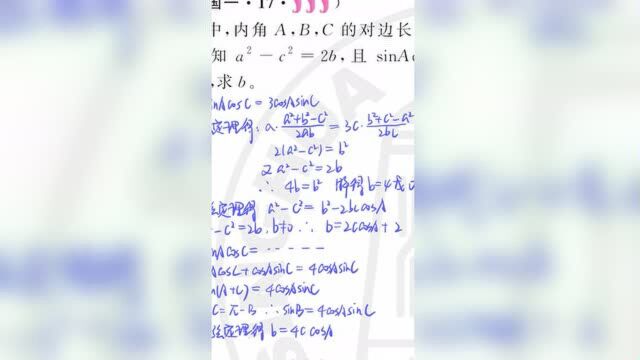 国一·17·
中,内角 A,B,C 的对边长
知 a² − c² = 2b, 且 sinA
,求 b。
nAcosC = 3cosAsinC
定理得: a·(a²+b²-c²)/(2ab) = 3c·(b²+c²-a²)/(2bc)
2(a²-c²) = b²
又 a²-c² = 2b
∴ 4b = b² 解得 b=4或
定理得 a²-c² = b²-2bccosA
-c²=2b, b≠0 ∴ b=2ccosA+2
nAcosC = - - - - -
AcosC+cosAsinC = 4cosAsinC
n(A+C) = 4cosAsinC
C=π-B ∴ sinB=4cosAsinC
弦定理得 b=4c cosA